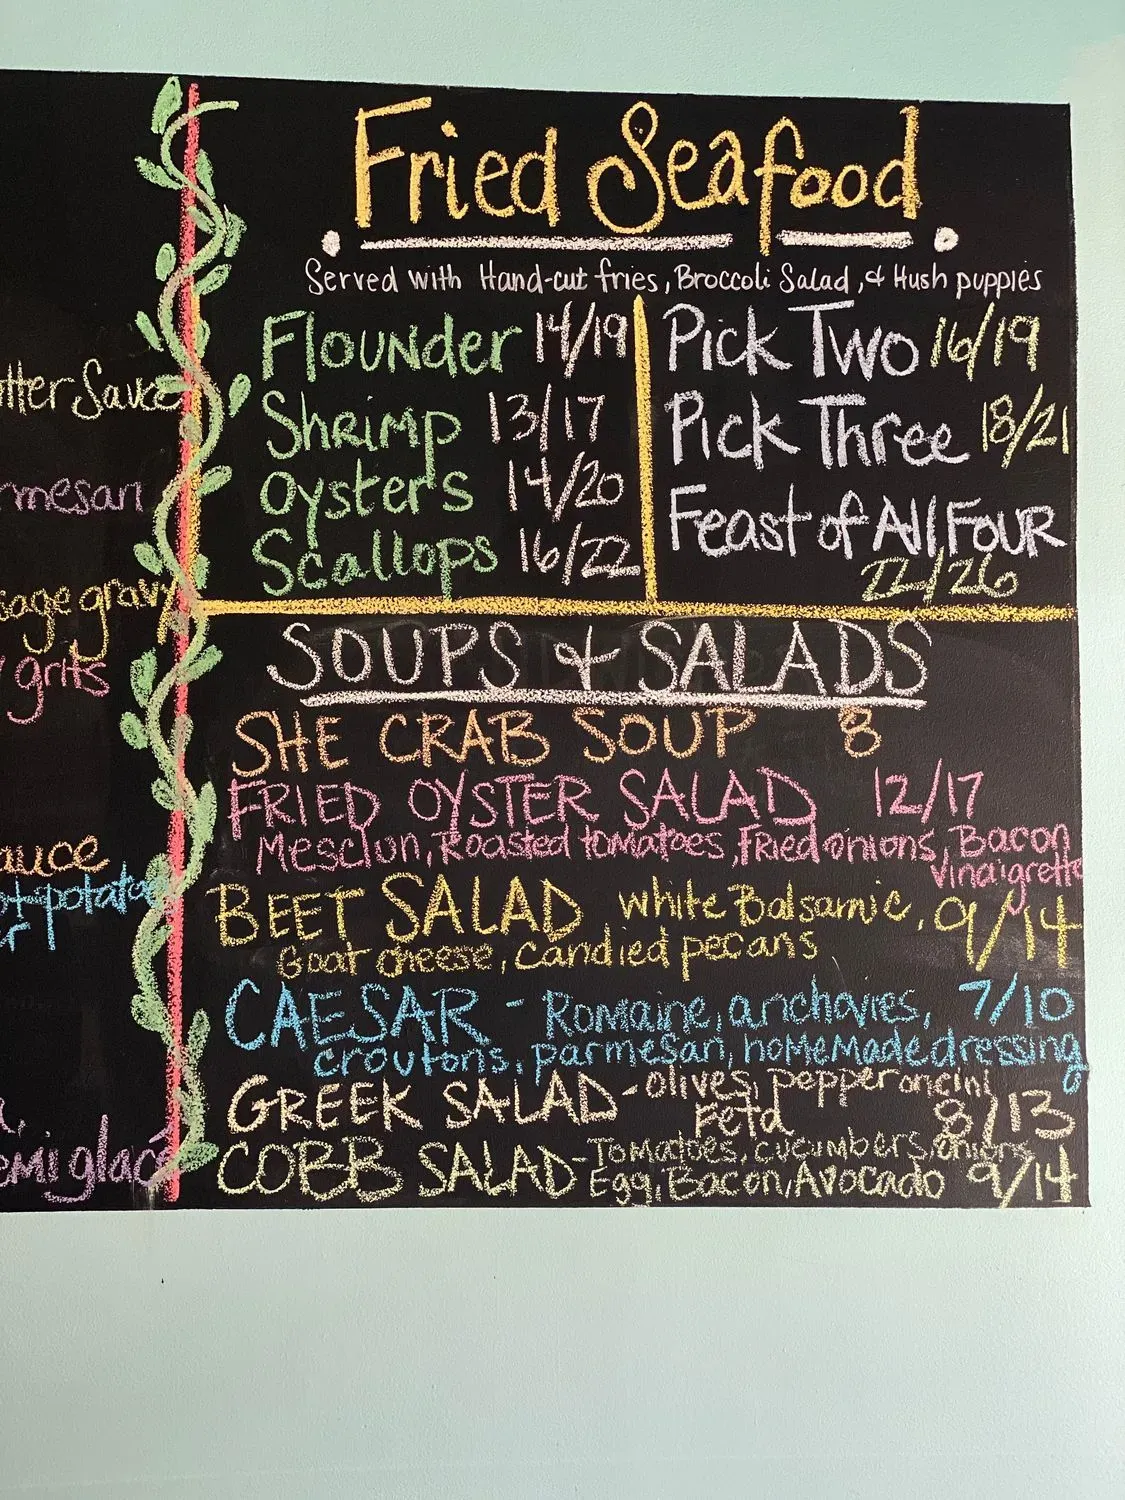 Fried Seafood
Served with Hand-cut fries, Broccoli Salad, & Hush puppies
Flounder 14/19
Shrimp 13/17
Oysters 14/20
Scallops 16/22
Pick Two 16/19
Pick Three 18/21
Feast of All Four
22/26
SOUPS & SALADS
SHE CRAB SOUP 8
FRIED OYSTER SALAD 12/17
Mesclun, Roasted tomatoes, Fried onions, Bacon
vinaigrette
BEET SALAD white Balsamic, 9/14
Goat cheese, candied pecans
CAESAR - Romaine, anchovies, 7/10
croutons, parmesan, homemade dressing
GREEK SALAD - olives, pepperoncini
Feta 8/13
COBB SALAD - Tomatoes, cucumbers, onions
Egg, Bacon, Avocado 9/14
tter Sauce
rmesan
sage gravy
grits
auce
ot potato
r
emi glacé